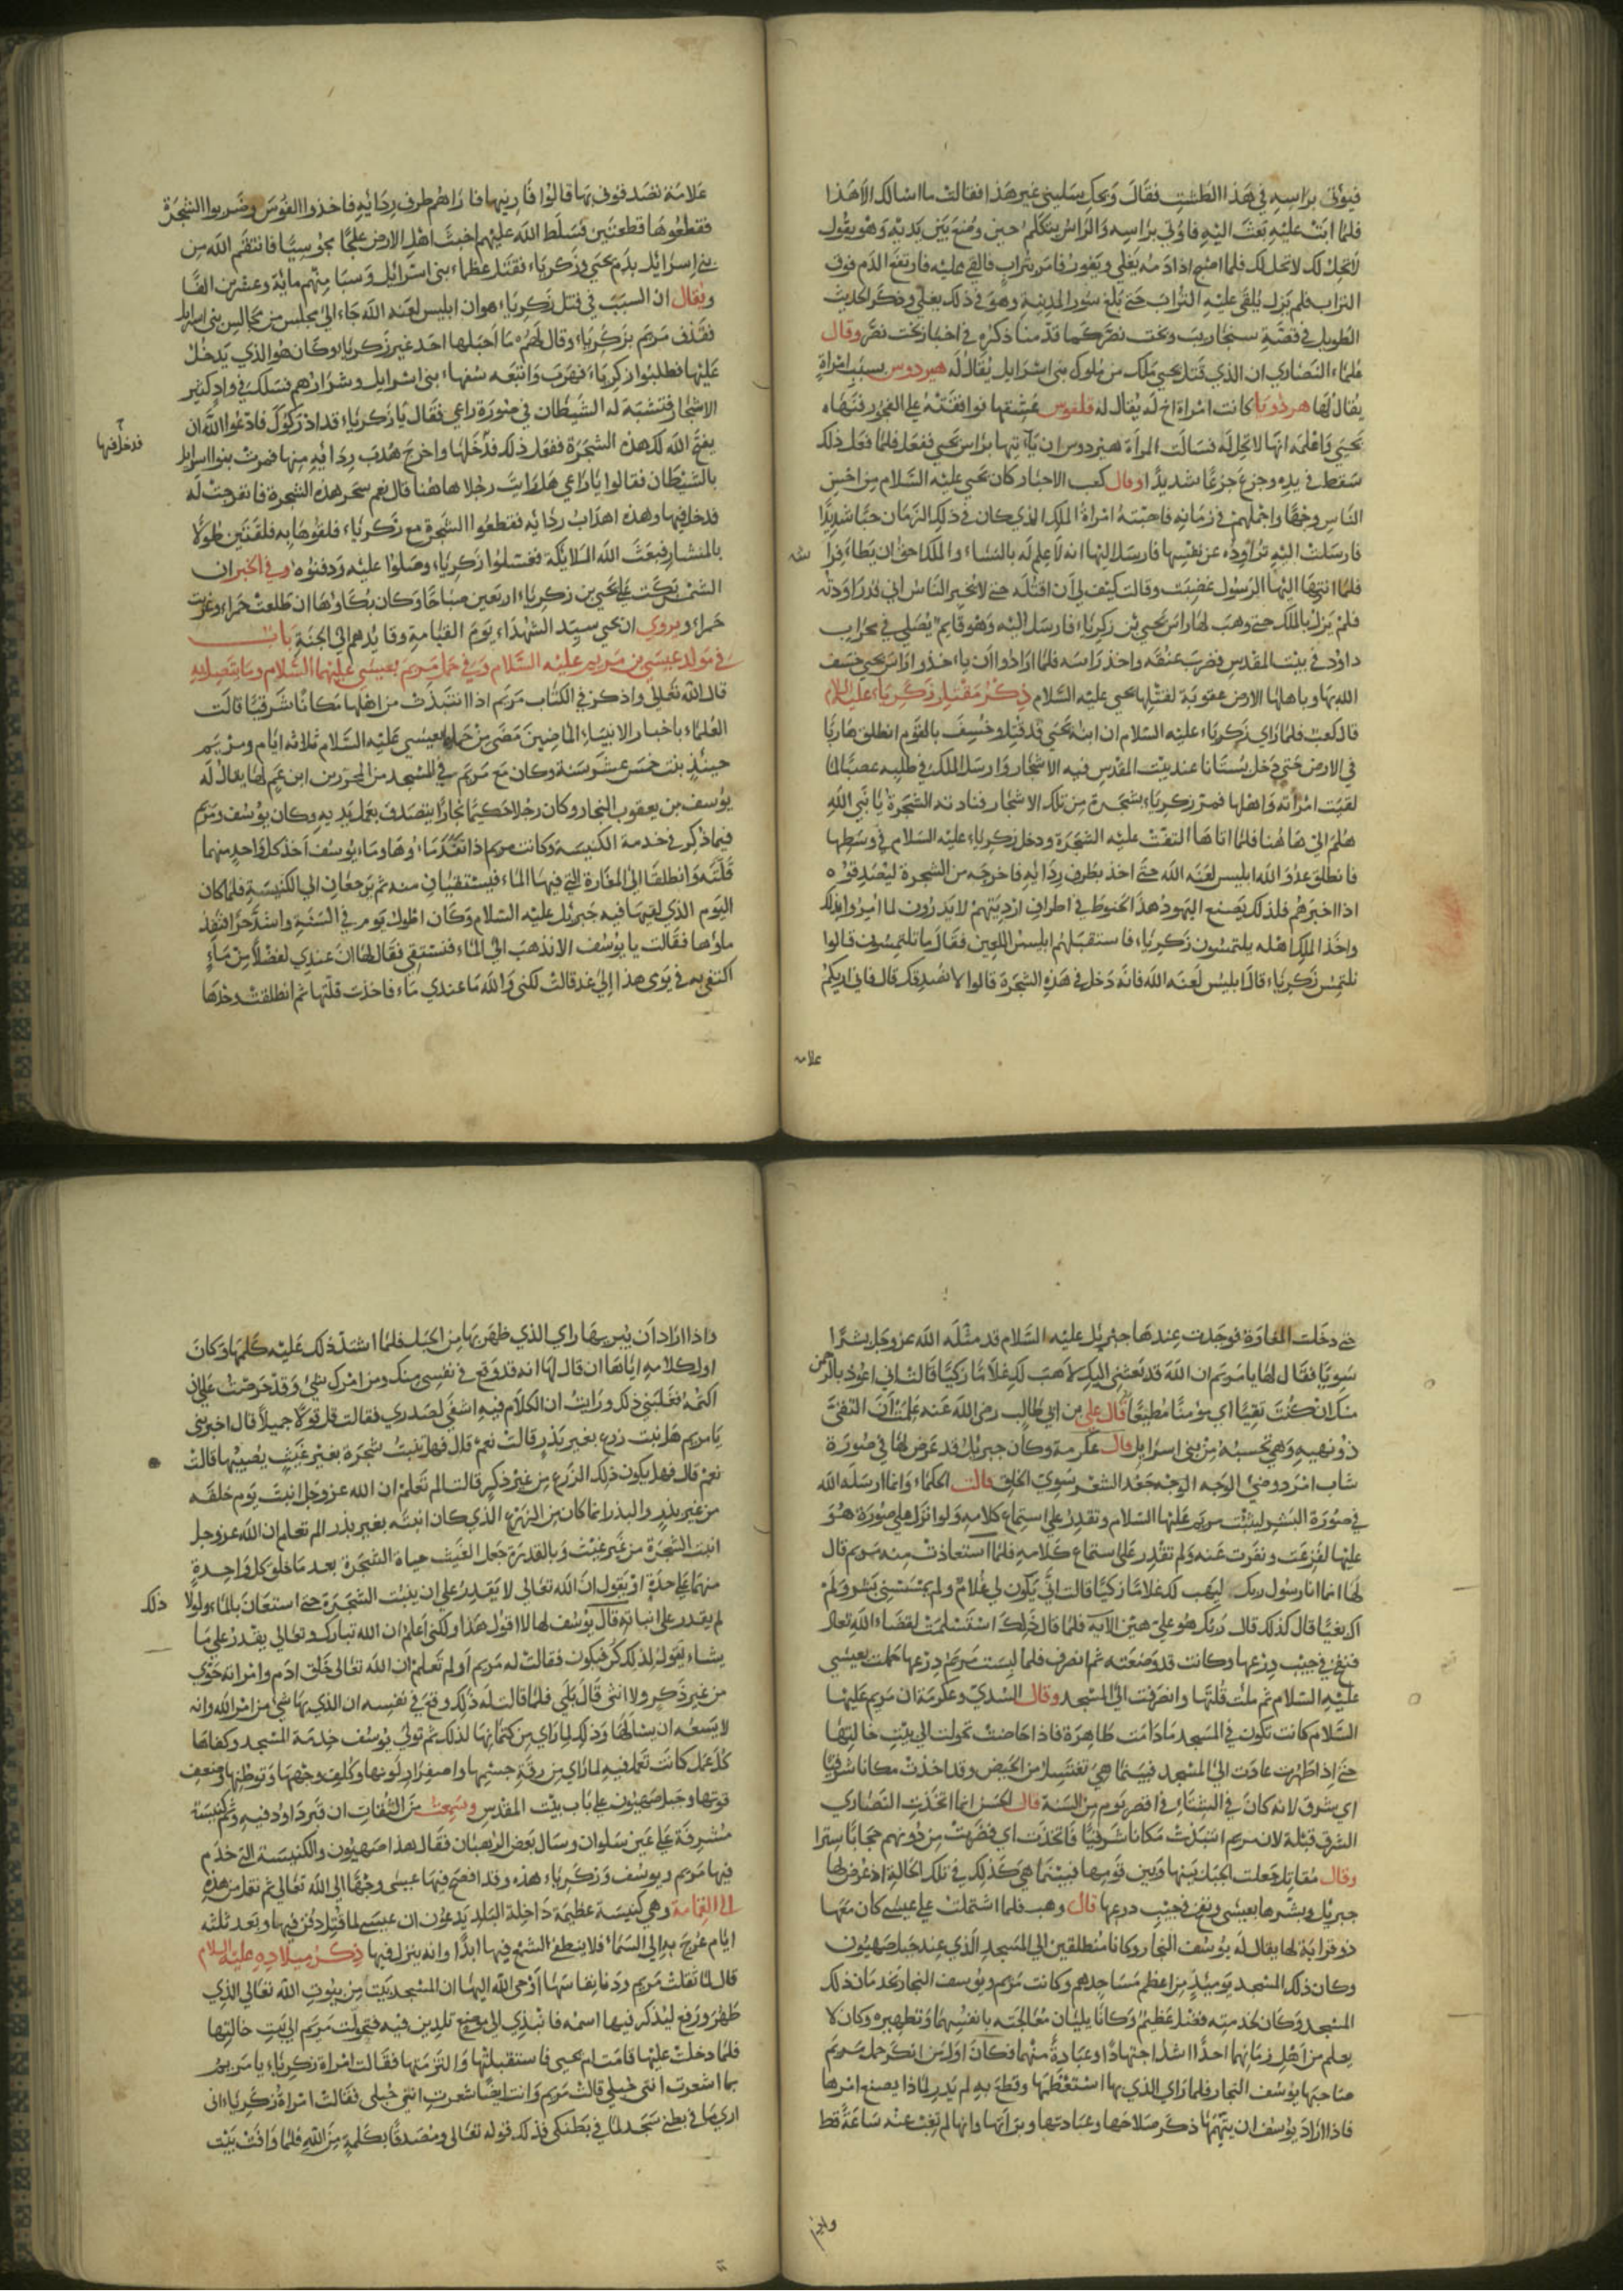 فيؤتى براسه في هذا الطشت فقال ويحك سليني غير هذا فقالت ما اسالك الا هذا
فلما ابت عليه بعث اليه فاوتي براسه والراس يتكلم حين وضع بين يديه وهو يقول
لا تحل لك لا تحل لك فلما اصبح اذا دمه يغلي ويفور فامر بتراب فالقي عليه فارتفع الدم فوق
التراب فلم يزل يلقى عليه التراب حتى بلغ سور المدينة وهو في ذلك يغلي وذكر الحديث
الطويل في قصة سنجاريب وبخت نصر كما قدمنا ذكره في اخبار بخت نصر وقال
علماء النصاري ان الذي قتل يحيى ملك من ملوك بني اسرايل يقال له هيردوس بسبب امراة
يقال لها هرذويا كانت امراة اخ له يقال له فلفوس عشقها فوافقته على الفجور فنهاه
يحيى واعلمه انها لا تحل له فسالت المراة هيردوس ان ياتيها براس يحيى ففعل فلما فعل ذلك
سقط في يده وجزع جزعا شديدا وقال كعب الاحبار كان يحيى عليه السلام من احسن
الناس وجها واجملهم في زمانه فاحبته امراة الملك الذي كان في ذلك الزمان حبا شديدا
فارسلت اليه تراوده عن نفسها فارسل اليها انه لا علم له بالنساء والملك احق ان يطاء فرا
شه
فلما انتهى اليها الرسول غضبت وقالت كيف لي ان اقتله حتى لا يخبر الناس اني قد راودته
فلم يزل بالملك حتى وهب لها راس يحيى بن زكرياء فارسل اليه وهو قايم يصلي في محراب
داود في بيت المقدس فضرب عنقه واخذ راسه فلما ارادوا ان ياخذوا راس يحيى خسف
الله بها وباهلها الارض عقوبة لقتلها يحيى عليه السلام ذكر مقتل زكرياء عليه السلام
قال كعب فلما راي زكرياء عليه السلام ان ابنه يحيى قد قتل وخسف بالقوم انطلق هاربا
في الارض حتى دخل بستانا عند بيت المقدس فيه الاشجار وارسل الملك في طلبه غضبا لما
لقيت امراته واهلها فمر زكرياء بشجرة من تلك الاشجار فنادته الشجرة يا نبي الله
هلم الى هاهنا فلما اتاها التفت عليه الشجرة ودخل زكرياء عليه السلام في وسطها
فانطلق عدو الله ابليس لعنه الله حتى اخذ بطرف ردايه فاخرجه من الشجرة ليصدقوه
اذا اخبرهم فلذلك يصنع اليهود هذا الخيوط في اطراف ارديتهم لا يدرون لما امروا بذلك
واخذ الملك اهله يلتمسون زكرياء فاستقبلهم ابليس اللعين فقال ما تلتمسون قالوا
نلتمس زكرياء قال ابليس لعنه الله فانه دخل في هذه الشجرة قالوا لا نصدقك قال فاني اريكم
علامه
علامة تصدقوني بها قالوا فارنيها فاراهم طرف ردائه فاخذوا الفوس وضربوا الشجرة
فقطعوها قطعتين فسلط الله عليهم اخبث اهل الارض علجا مجوسيا فانتقم الله من
بني اسرائل بدم يحيى وزكرياء فقتل عظماء بني اسرائل وسبا منهم مائة وعشرين الفا
ويقال ان السبب في قتل زكرياء هو ان ابليس لعنه الله جاء الى مجلس من مجالس بني اسرايل
فقذف مريم بزكرياء وقال لهم ما احبلها احد غير زكرياء وكان هو الذي يدخل
عليها فطلبوا زكرياء فهرب واتبعه سفهاء بني اسرايل وشرارهم فسلك في واد كثير
الاشجار فتشبه له الشيطان في صورة راعي فقال يا زكرياء قد ادركوك فادعوا الله ان
يفتح الله لك هذه الشجرة ففعل ذلك فدخلها واخرج هدب ردايه منها فمرت بنوا اسرايل
فدخل فيها
بالشيطان فقالوا يا راعي هل رايت رجلا هاهنا قال نعم سحر هذه الشجرة فانفرجت له
فدخل فيها وهذه اهداب ردائه فقطعوا الشجرة مع زكرياء فلقوها به فلقتين طولا
بالمنشار فبعث الله الملايكة فغسلوا زكرياء وصلوا عليه ودفنوه وفي الخبر ان
الشمس بكت على يحيى بن زكرياء اربعين صباحا وكان بكاوها ان طلعت حمراء وغربت
حمراء ويروي ان يحيى سيد الشهداء يوم القيامة وقايدهم الى الجنة باب
في مولد عيسى بن مريم عليه السلام وفي حمل مريم بعيسى عليهما السلام وما يتصل به
قال الله تعالى واذكر في الكتاب مريم اذ انتبذت من اهلها مكانا شرقيا قالت
العلماء باخبار الانبياء الماضين مضى من حمل بعيسى عليه السلام ثلاثة ايام ومريم
حينئذ بنت خمس عشر سنة وكان مع مريم في المسجد من المحررين ابن عم لها يقال له
يوسف بن يعقوب النجار وكان رجلا حكيما نجارا يتصدق بعمل يديه وكان يوسف ومريم
فيما ذكر في خدمة الكنيسة وكانت مريم اذا نفد ماءوها وماء يوسف اخذ كل واحد منهما
قلته وانطلقا الى المغارة التي فيها الماء فيستقيان منه ثم يرجعان الي الكنيسة فلما كان
اليوم الذي لقيها فيه جبرئل عليه السلام وكان اطول يوم في السنة واشد حرا فنفذ
ماؤها فقالت يا يوسف الا تذهب الى الماء فنستقي فقال لها ان عندي لفضلا من ماء
اكتفي به في يوى هذا الي غد قالت لكني والله ما عندي ماء فاخذت قلتها ثم انطلقت وحدها
حتى دخلت المغارة فوجدت عندها جبرئل عليه السلام قد مثله الله عز وجل بشرا
سويا فقال لها يا مريم ان الله قد بعثني اليك لاهب لك غلاما زكيا قالت اني اعوذ بالرحمن
منك ان كنت تقيا اي مؤمنا مطيعا قال علي بن ابي طالب رضى الله عنه علمت ان التقى
ذو نهية وهي تحسبه من بني اسرايل قال عكرمة وكان جبريل قد عرض لها في صورة
شاب امرد وضئ الوجه جعد الشعر سوي الخلق قالت الحكماء وانما ارسله الله
في صورة البشر لتثبت مريم عليها السلام وتقدر على استماع كلامه ولو انزل على صورة هو
عليها لفزعت ونفرت عنه ولم تقدر على استماع كلامه فلما استعاذت منه مريم قال
لها انما انا رسول ربك ليهب لك غلاما زكيا قالت اني يكون لي غلام ولم يمسسني بشر ولم
اك بغيا قال كذلك قال ربك هو علي هين الاية فلما قال ذلك استسلمت لقضاء الله تعالى
فنفخ في جيب درعها وكانت قد وضعته ثم انصرف فلما لبست مريم درعها حملت بعيسى
عليه السلام ثم ملت قلتها وانصرفت الى المسجد وقال السدي وعكرمة ان مريم عليها
السلام كانت تكون في المسجد ما دامت طاهرة فاذا حاضت تحولت الي بيت خالتها
حتى اذا طهرت عادت الى المسجد فبينما هي تغتسل من الحيض وقد اخذت مكانا شرقيا
اي مشرق لانه كان في الشتاء في اقصر يوم من السنة قال الحسن انما اتخذت النصاري
الشرق قبلة لان مريم انتبذت مكانا شرقيا فاتخذت اي فضربت من دونهم حجابا سترا
وقال مقاتل جعلت الجبل بينها وبين قومها فبينما هي كذلك في تلك الحالة اذ عرض لها
جبريل وبشرها بعيسى ونفخ في جيب درعها قال وهب فلما اشتملت على عيسى كان معها
ذو قرابة لها يقال له يوسف النجار وكانا منطلقين الى المسجد الذي عند جبل صهيون
وكان ذلك المسجد يوميئذ من اعظم مساجدهم وكانت مريم ويوسف النجار يخدمان ذلك
المسجد وكان لخدمته فضل عظيم وكانا يليان معالجته بانفسهما وتطهيره وكان لا
يعلم من اهل زمانهما احدا اشد اجتهادا وعبادة منهما فكان اول من انكر حمل مريم
صاحبها يوسف النجار فلما راي الذي بها استعظمها وقطع به لم يدر لماذا يصنع امرها
فاذا اراد يوسف ان يتهمها ذكر صلاحها وعبادتها وبراتها وانها لم تغب عنه ساعة قط
واذا
واذا اراد ان يبريها راي الذي ظهر بها من الحبل فلما اشتد ذلك عليه كلمها وكان
اول كلامه اياها ان قال لها انه قد وقع في نفسي منك ومن امرك شئ وقد حرصت على ان
اكتمه فغلبني ذلك ورايت ان الكلام فيه اشفى لصدري فقالت قل قولا جميلا قال اخبريني
يا مريم هل نبت زرع بغير بذر قالت نعم قال فهل ينبت شجرة بغير غيث يصيبها قالت
نعم قال فهل يكون ذلك الزرع من غير ذكر قالت الم تعلم ان الله عز وجل انبت يوم خلقه
من غير بذر والبذر انما كان من الزرع الذي كان انبته بغير بذر الم تعلم ان الله عز وجل
انبت الشجرة من غير غيث وبالقدرة جعل الغيث حياة الشجرة بعد ما خلق كل واحدة
منهما على حدة او يقول ان الله تعالى لا يقدر على ان ينبت الشجرة حتى استعان بالماء ولولا
ذلك
لم يقدر على انباته قال يوسف لها لا اقول هذا ولكني اعلم ان الله تبارك وتعالي يقدر على ما
يشاء يقول لذلك كن فيكون فقالت له مريم اولم تعلم ان الله تعالى خلق ادم وامراته حوي
من غير ذكر ولا انثى قال بلي فلما قالت له ذلك وقع في نفسه ان الذي بها شئ من امر الله وانه
لا يسعه ان يسالها وذلك لما راي من كتمانها لذلك ثم تولى يوسف خدمة المسجد وكفاها
كل عمل كانت تعمله فيه لما راي من رقة جسمها واصفرار لونها وكلف وجهها ونتو بطنها وضعف
قوتها وجبل صهيون على باب بيت المقدس وسمعت من الثقات ان قبر داود فيه وثم كنيسة
مشرفة على عين سلوان وسال بعض الرهبان فقال هذا صهيون والكنيسة التي خدم
فيها مريم ويوسف وزكرياء هذه وقد افصح فيها عيسى وجها الي الله تعالى ثم نقل من هذه
الى القمامة وهي كنيسة عظيمة داخلة البلد يدعون ان عيسى لما قتل دفن فيها وبعد ثلثه
ايام عرج به الى السماء فلا ينطفي الشمع فيها ابدا وانه ينزل فيها ذكر ميلاده عليه السلام
قال لما ثقلت مريم ودنا نفاسها اوحى الله اليها ان المسجد بيت من بيوت الله تعالى الذي
طهر ورفع ليذكر فيها اسمه فانبذي الى موضع تلدين فيه فتحولت مريم الي بيت خالتها
فلما دخلت عليها قامت ام يحيى فاستقبلتها والتزمتها فقالت امراة زكرياء يا مريم
بما اشعرت اني حبلي قالت مريم وانت ايضا شعرت اني حبلى فقالت امراة زكرياء انى
اري ما في بطني يسجد لما في بطنك فذلك قوله تعالى ومصدقا بكلمة من الله فلما وافت بيت